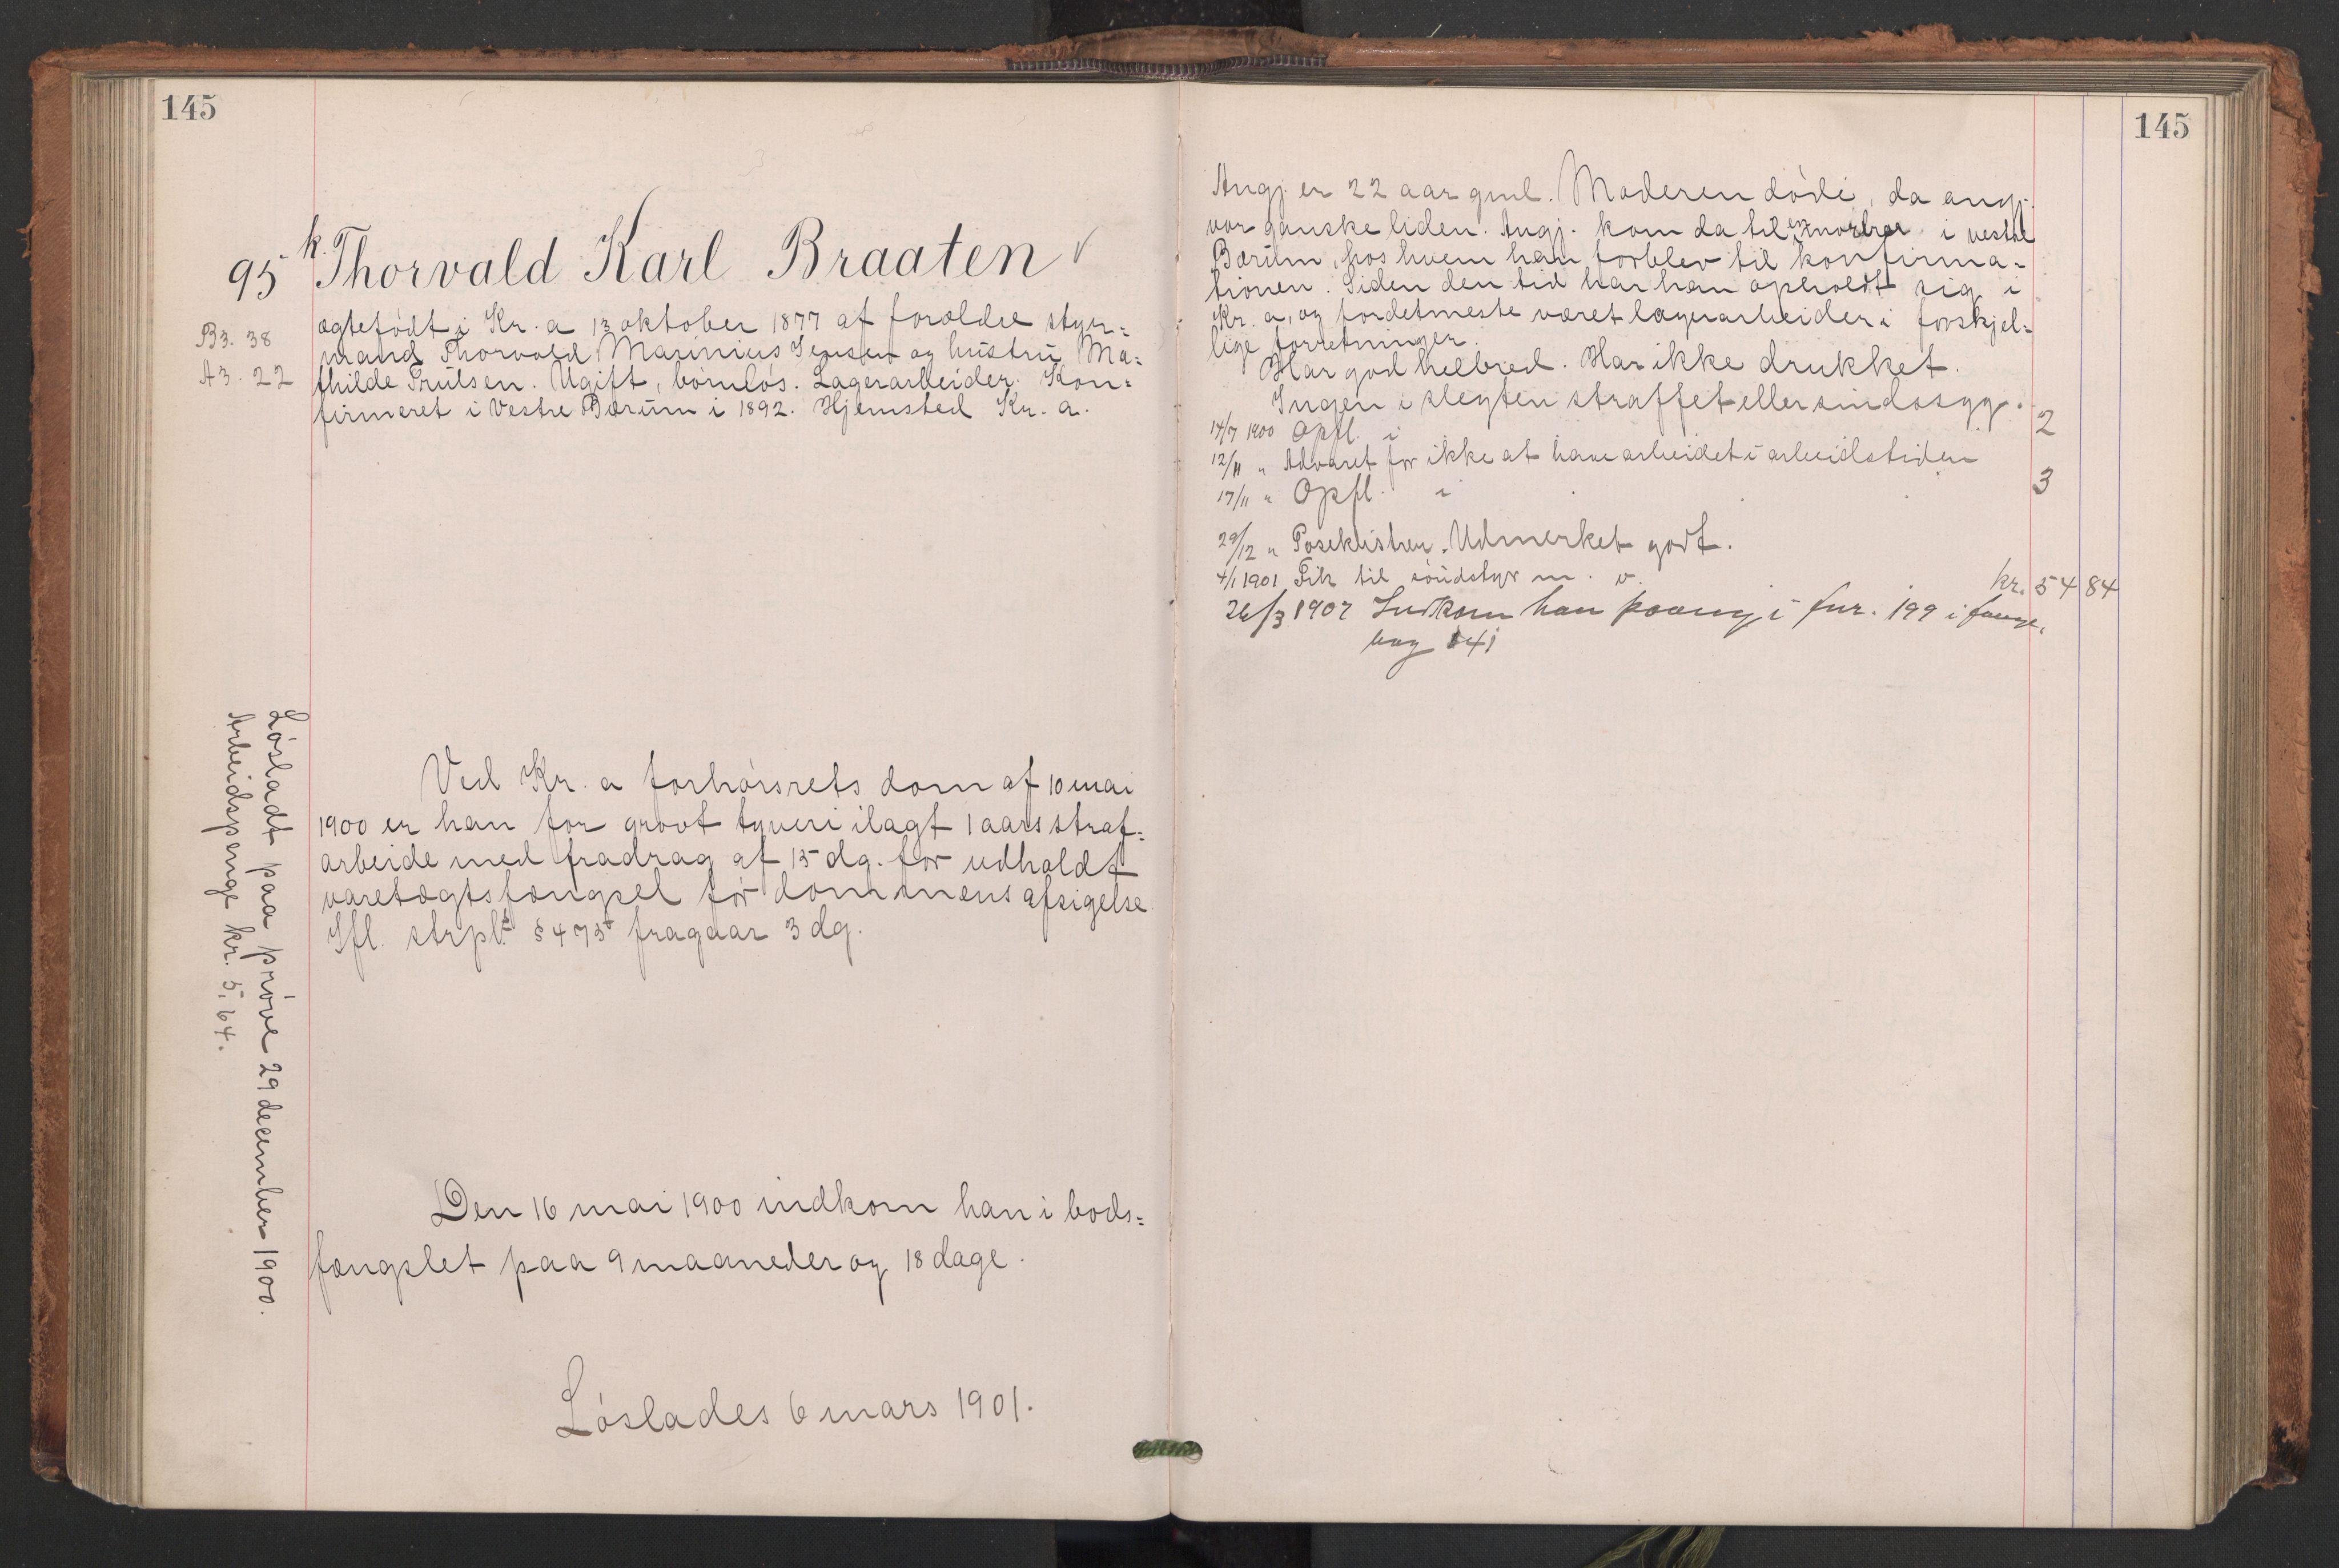 145
95 k. Thorvald Karl Braaten ✓
B3. 38
A3. 22
ægtefødt i Kr.a 13 oktober 1877 af forældre styr=
mand Thorvald Marinius Jensen og hustru Ma=
thilde Trulsen. Ugift, børnløs. Lagerarbeider. Kon=
firmeret i Vestre Bærum i 1892. Hjemsted Kr.a.
Ved Kr.a forhørsrets dom af 10 mai
1900 er han for grovt tyveri ilagt 1 aars straf=
arbeide med fradrag af 15 dg. for udholdt
varetægtsfængsel før dommens afsigelse.
Ifl. strpl. § 475 fragaar 3 dg.
Den 16 mai 1900 indkom han i bods=
fængslet paa 9 maaneder og 18 dage.
Løslades 6 mars 1901.
Løsladt paa prøve 29 december 1900.
Arbeidspenge kr. 5,64.
145
Angj. er 22 aar gml. Moderen døde, da angj.
var ganske liden. Angj. kom da til en morbror i vestre
Bærum, hos hvem han forblev til konfirma=
tionen. Siden den tid har han opholdt sig i
Kr.a, og fordetmeste været lagerarbeider i forskjel=
lige forretninger.
Har god helbred. Har ikke drukket.
Ingen i slegten straffet eller sindssyg.
14/7 1900 Opfl. i 2
12/11 " Advaret for ikke at have arbeidet i arbeidstiden
17/11 " Opfl. i 3
29/12 " Poseklistrer. Udmerket godt.
4/1 1901 Fik til søudstyr m. v. kr. 54 84
26/3 1907 Indkom han paany i fnr. 199 i fange.
bog 141